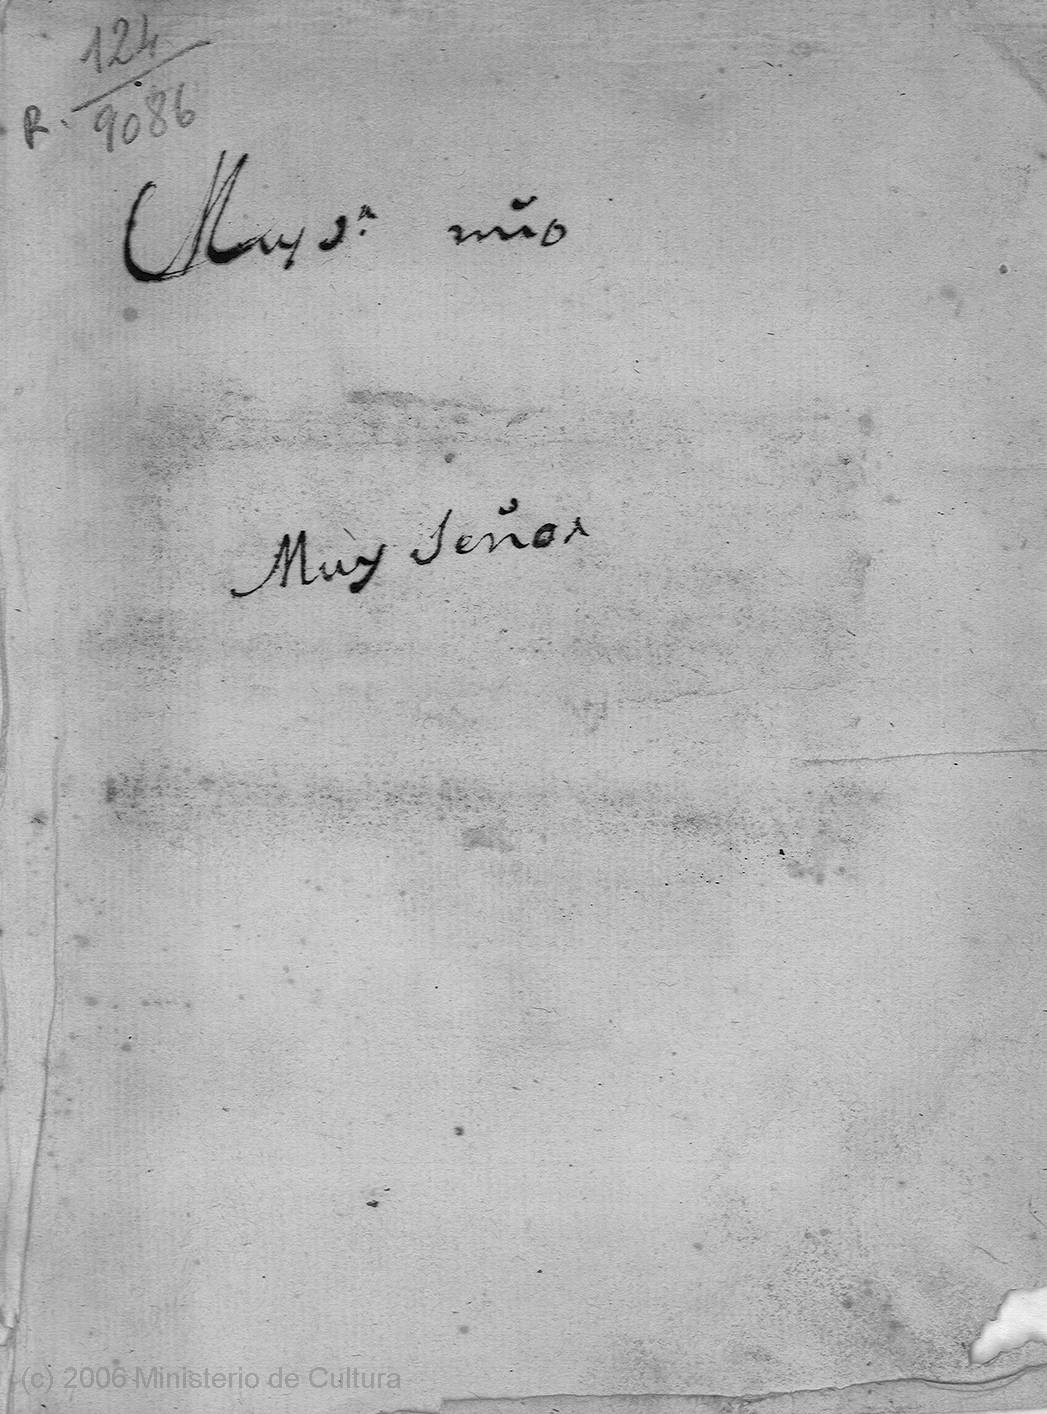 124
R. 9086
Muy s.r mio
Muy Señor
(c) 2006 Ministerio de Cultura